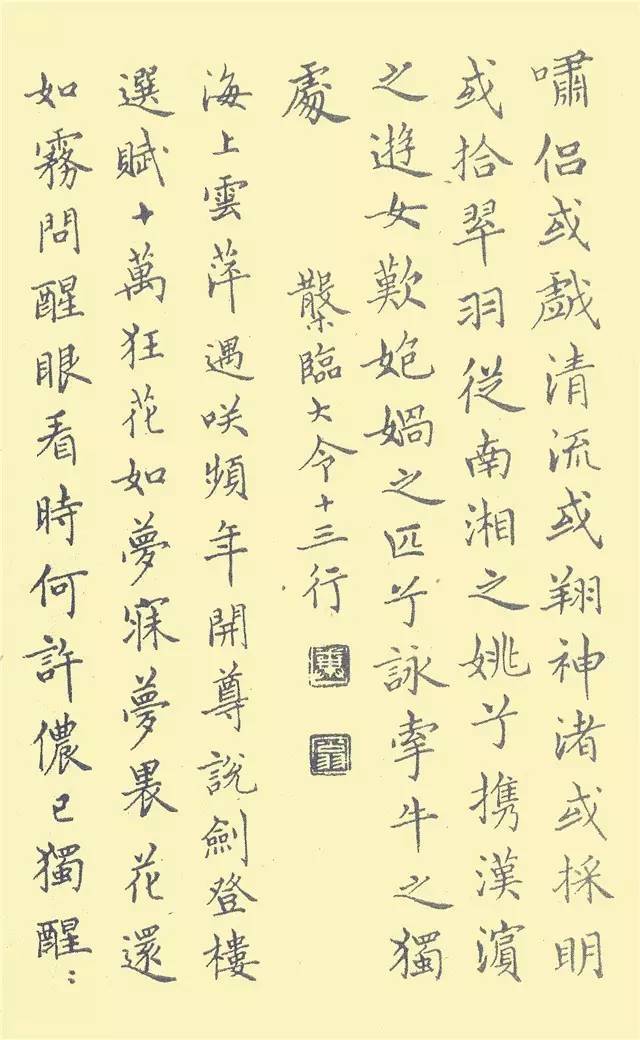 嘯侶或戲清流或翔神渚或採明
或拾翠羽從南湘之姚兮携漢濱
之遊女歎匏媧之匹兮詠牽牛之獨
處
槃臨大令十三行
海上雲萍遇咲頻年開尊說劍登樓
選賦十萬狂花如夢寐夢裏花還
如霧問醒眼看時何許儂已獨醒：